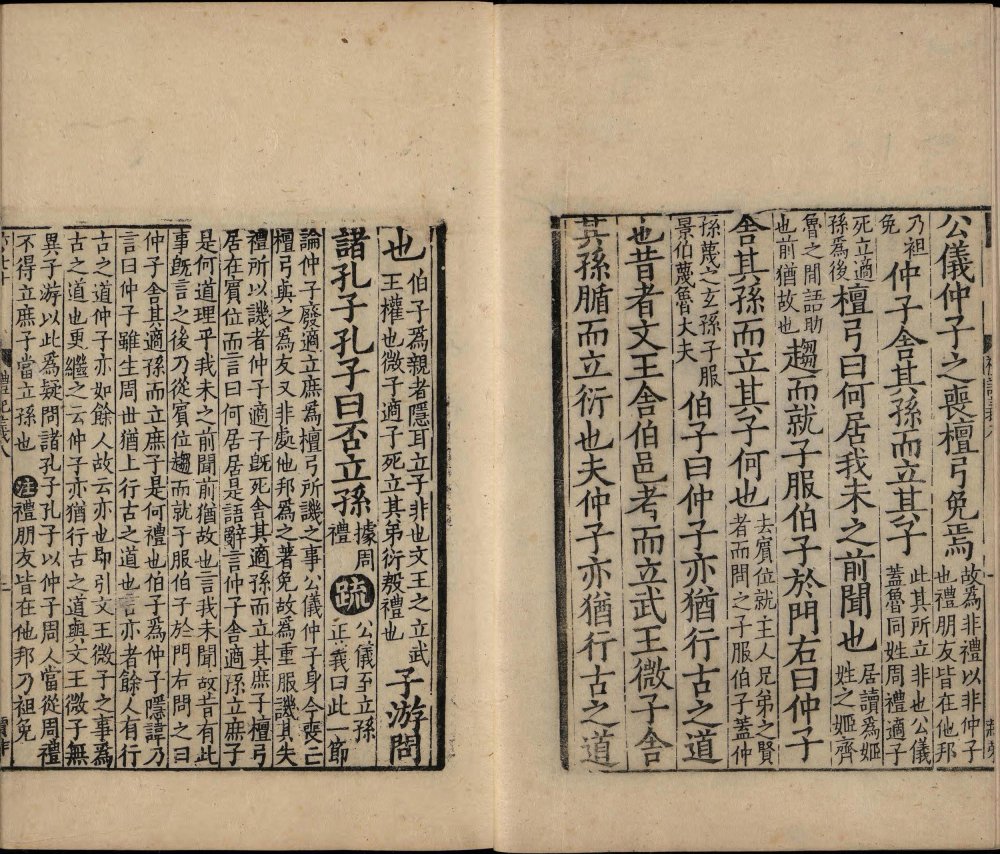 公儀仲子之喪檀弓免焉故為非禮以非仲子也禮朋友皆在他邦
乃袒免仲子舍其孫而立其子此其所立非也公儀蓋魯同姓周禮適子
死立適孫為後檀弓曰何居我未之前聞也居讀為姬姓之姬齊
魯之閒語助也前猶故也趨而就子服伯子於門右曰仲子
舍其孫而立其子何也去賓位就主人兄弟之賢者而問之子服伯子蓋仲
孫蔑之玄孫子服景伯蔑魯大夫伯子曰仲子亦猶行古之道
也昔者文王舍伯邑考而立武王微子舍
其孫腯而立衍也夫仲子亦猶行古之道
也伯子為親者隱耳立子非也文王之立武王權也微子適子死立其弟衍殷禮也子游問
諸孔子孔子曰否立孫據周禮疏公儀至立孫正義曰此一節
論仲子廢適立庶為檀弓所譏之事公儀仲子身今喪亡
檀弓與之為友又非處他邦為之著免故為重服譏其失
禮所以譏者仲子適子旣死舍其適孫而立其庶子檀弓
居在賓位而言曰何居居是語辭言仲子舍適孫立庶子
是何道理乎我未之前聞前猶故也言我未聞故昔有此
事旣言之後乃從賓位趨而就子服伯子於門右問之曰
仲子舍其適孫而立庶子是何禮也伯子為仲子隱諱乃
言曰仲子雖生周世猶上行古之道也言亦者餘人有行
古之道仲子亦如餘人故云亦也即引文王微子之事為
古之道也更繼之云仲子亦猶行古之道與文王微子無
異子游以此為疑問諸孔子孔子以仲子周人當從周禮
不得立庶子當立孫也注禮朋友皆在他邦乃袒免
禮記義八